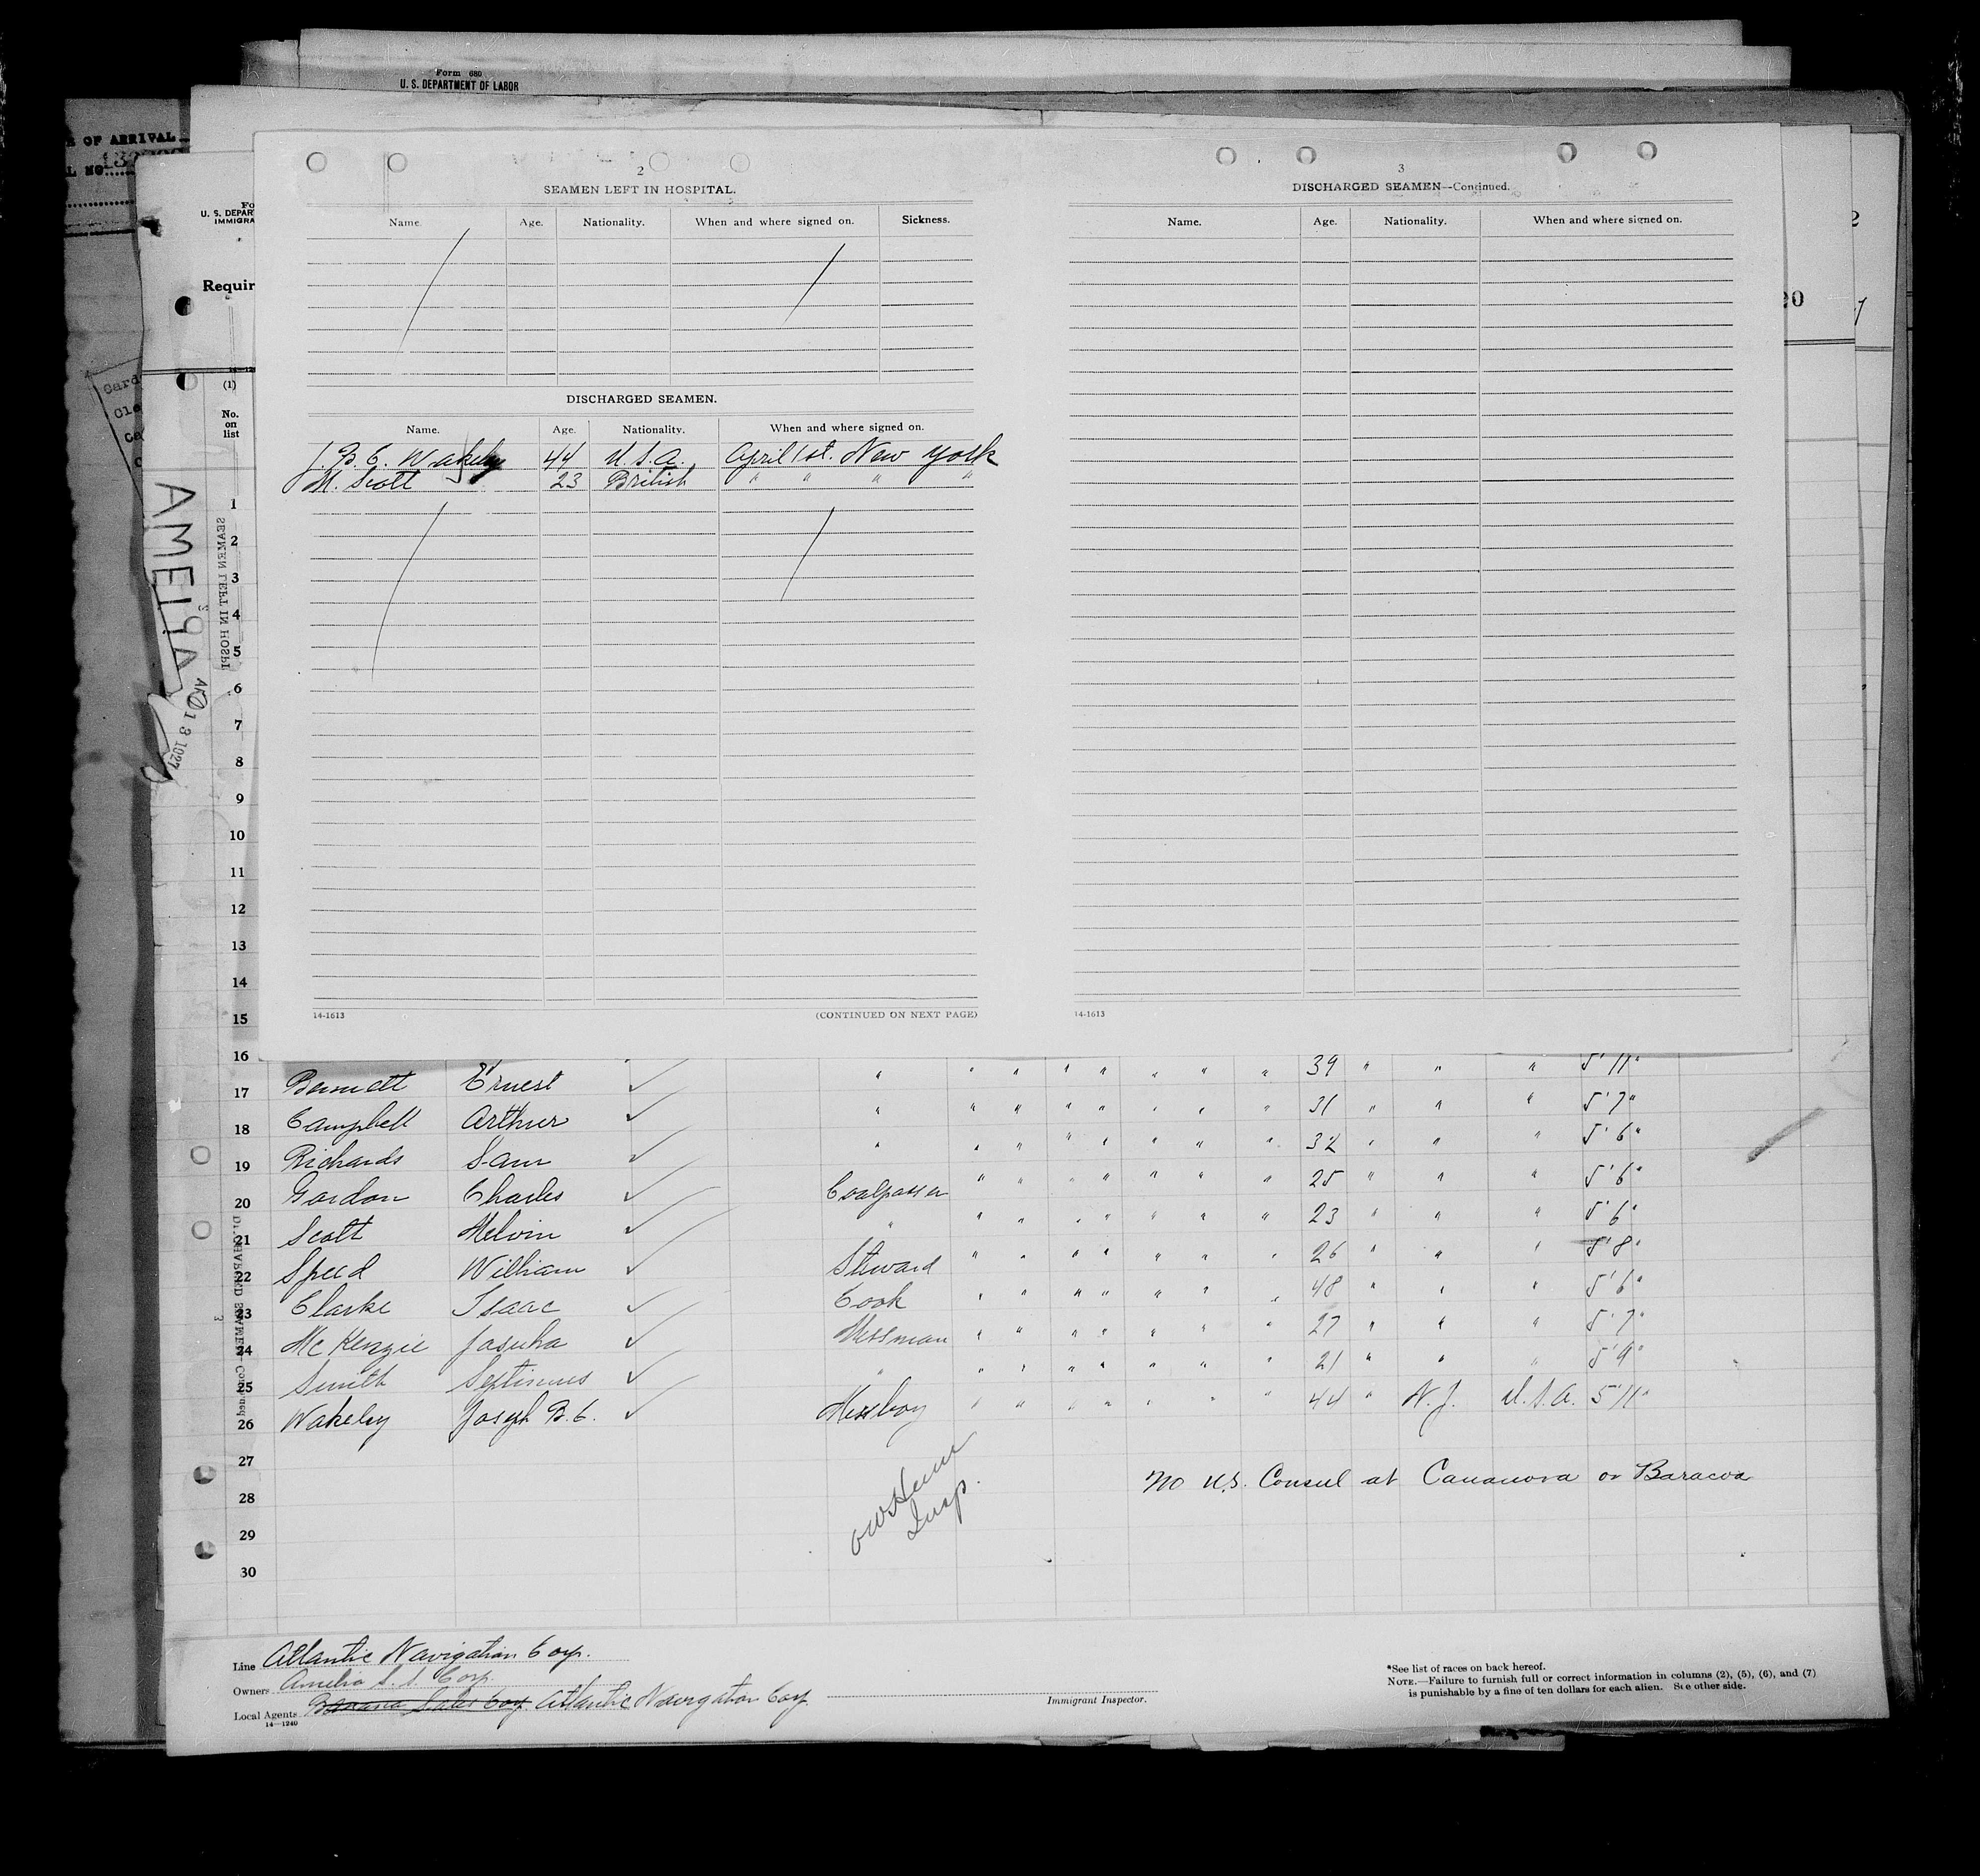 Form 680
U. S. DEPARTMENT OF LABOR
OF ARRIVAL
Fo
U. S. DEPAR
IMMIGRA
Requir
(1)
No.
on
list
AMELIA
1927
20
2
SEAMEN LEFT IN HOSPITAL.
Name. Age. Nationality. When and where signed on. Sickness.
DISCHARGED SEAMEN.
Name. Age. Nationality. When and where signed on.
J. B. C. Wakeley 44 U.S.A. April 1st. New York
M. Scott 23 British " " " "
14-1613 (CONTINUED ON NEXT PAGE)
3
DISCHARGED SEAMEN—Continued.
Name. Age. Nationality. When and where signed on.
14-1613
1
2
3
4
5
6
7
8
9
10
11
12
13
14
15
16
17 Bennett Ernest ✓ " " " " " " " " 39 " " " 5' 11"
18 Campbell Arthur ✓ " " " " " " " " 31 " " " 5' 7"
19 Richards Sam ✓ " " " " " " " " 32 " " " 5' 6"
20 Gordon Charles ✓ Coalpasser " " " " " " " 25 " " " 5' 6"
21 Scott Melvin ✓ " " " " " " " " 23 " " " 5' 6"
22 Speed William ✓ Steward " " " " " " " 26 " " " 5' 8"
23 Clarke Isaac ✓ Cook " " " " " " " 48 " " " 5' 6"
24 McKenzie Josuha ✓ Messman " " " " " " " 27 " " " 5' 7"
25 Smith Septimus ✓ " " " " " " " " 21 " " " 5' 9"
26 Wakeley Joseph B. C. ✓ Messboy " " " " " " " 44 " N. J. U.S.A. 5' 11"
27
No U.S. Consul at Cananova or Baracoa
28
Insp.
29
30
Line Atlantic Navigation Corp.
Owners Amelia S. S. Corp.
Local Agents Banana Sales Corp. Atlantic Navigation Corp.
14—1240
Immigrant Inspector.
*See list of races on back hereof.
NOTE.—Failure to furnish full or correct information in columns (2), (5), (6), and (7)
is punishable by a fine of ten dollars for each alien. See other side.